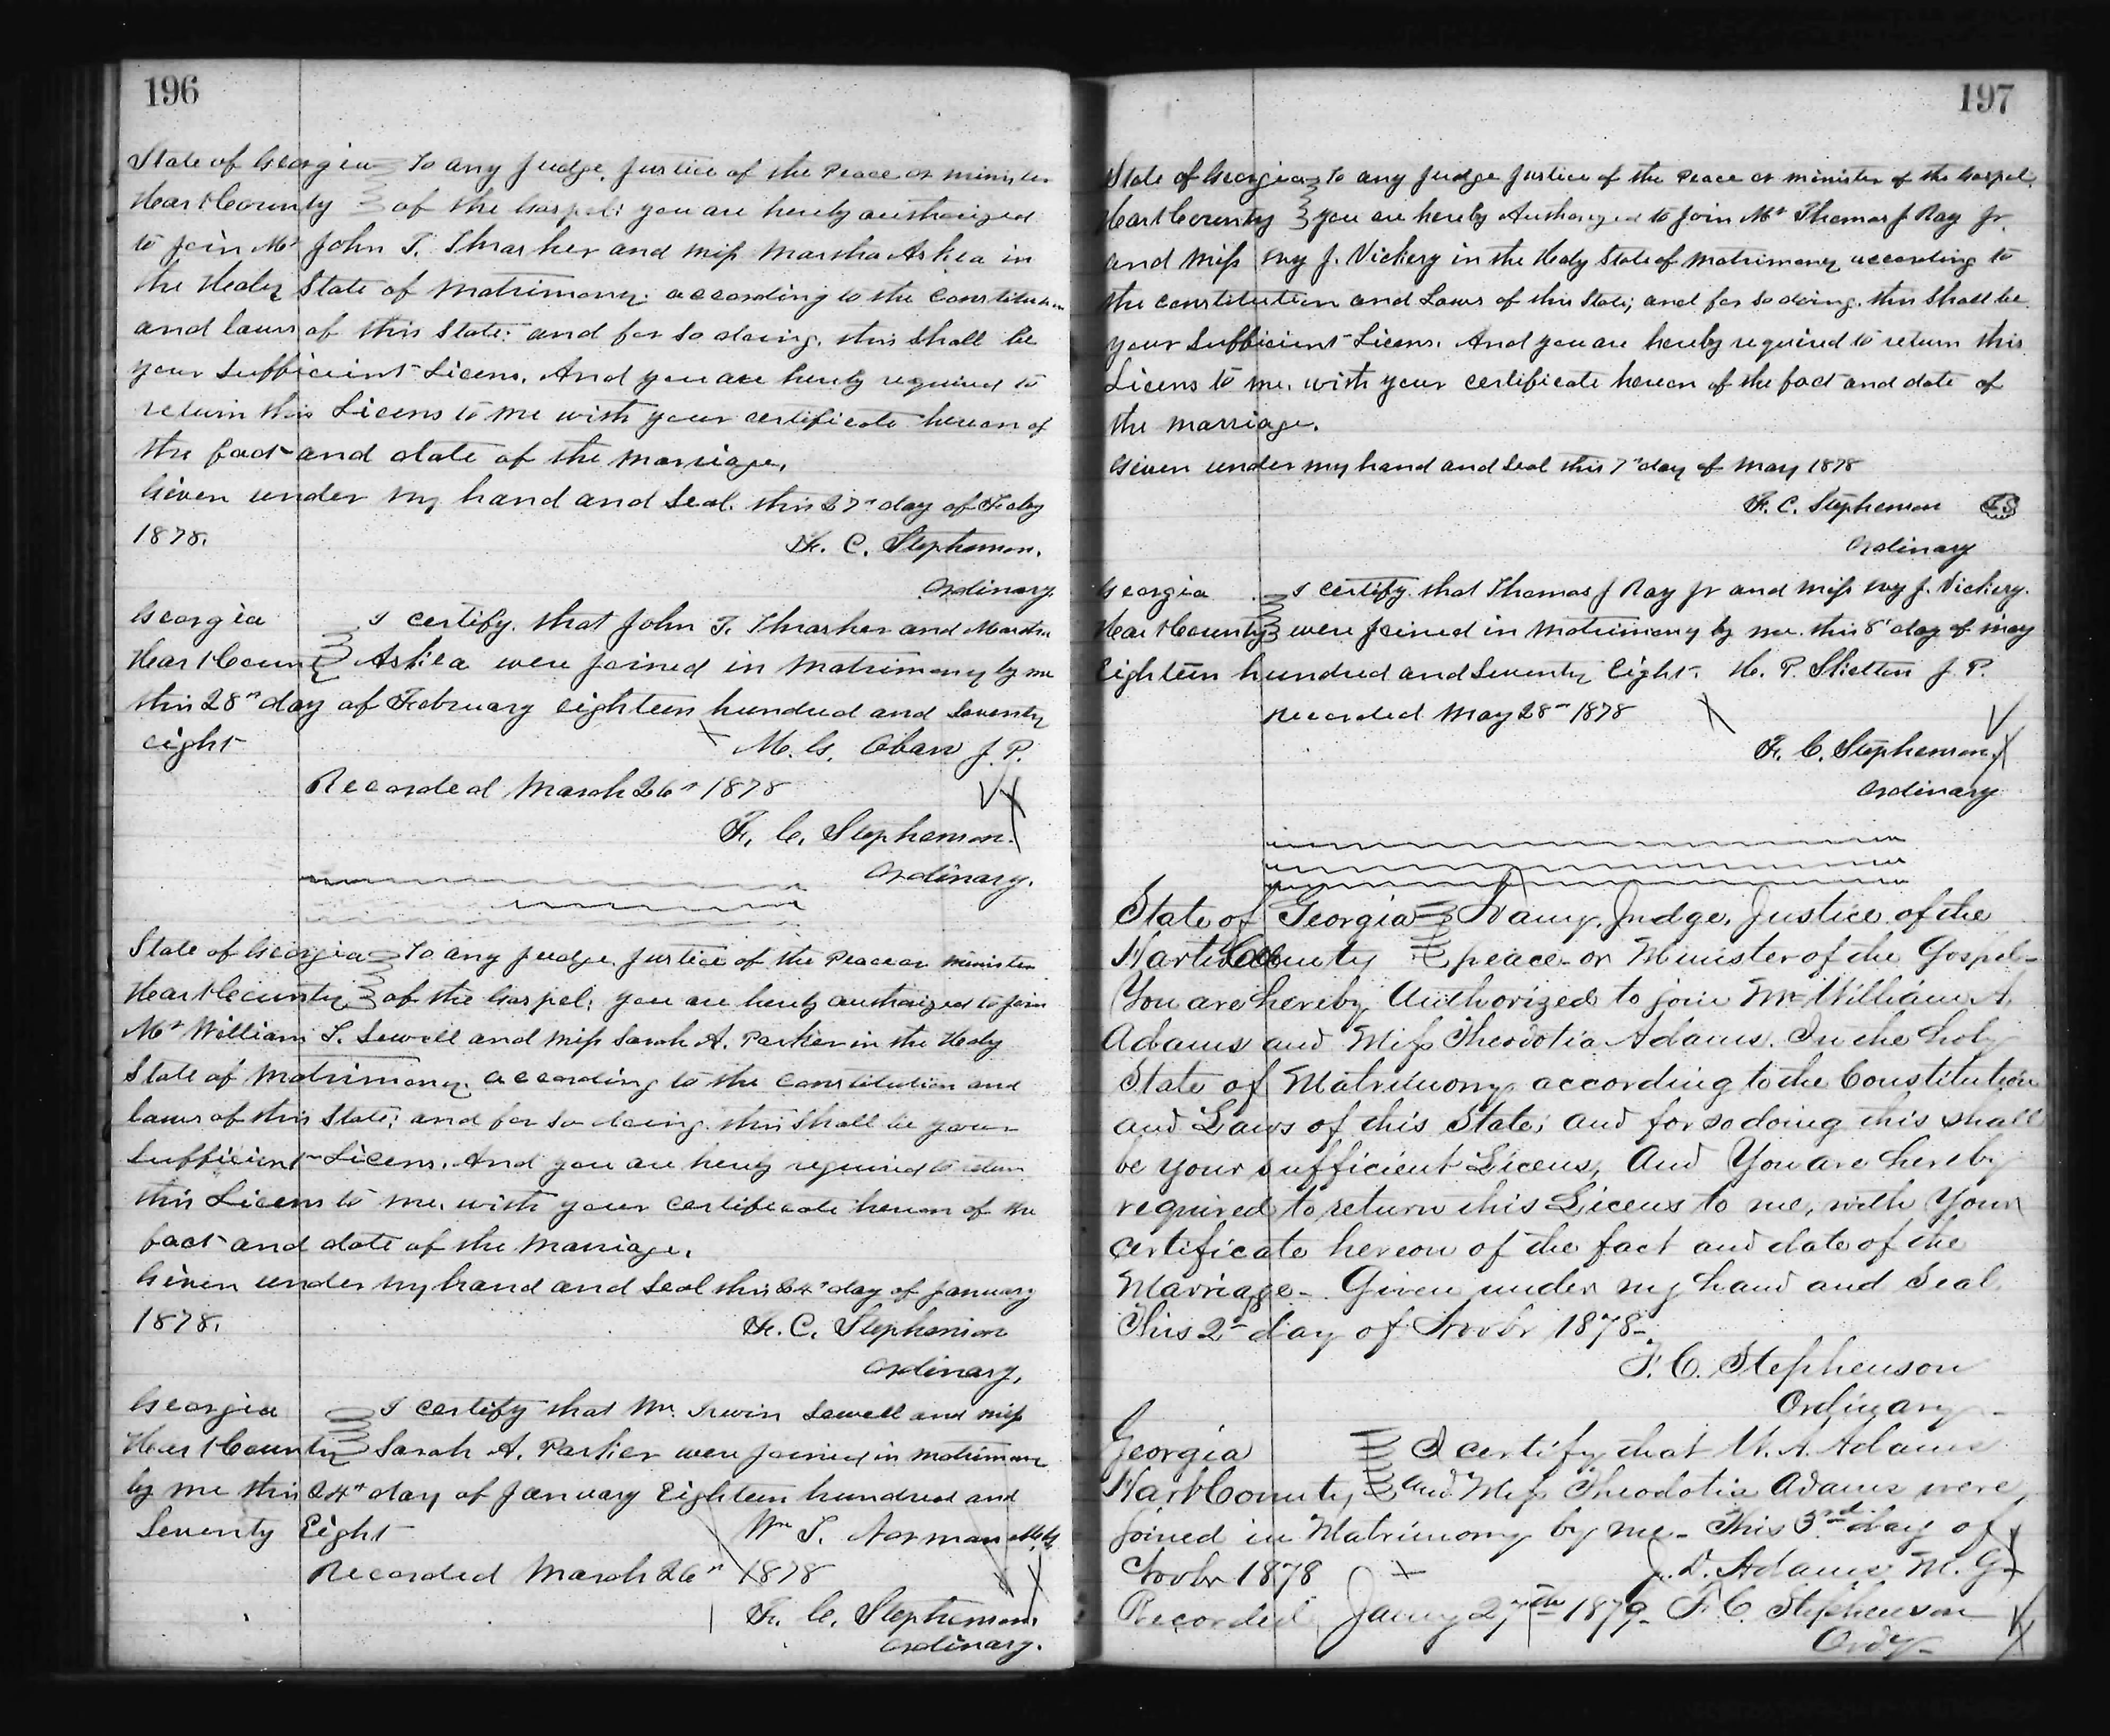 196
State of Georgia To any Judge, Justice of the Peace or minister
Hart County of the Gospel: you are hereby authorized
to join Mr John T. Thrasher and miss Martha Askea in
the Holy State of Matrimony. according to the Constitution
and laws of this State: and for so doing, this shall be
your Sufficient Licens, And you are hereby required to
return this Licens to me with your certificate hereon of
the fact and date of the marriage,
Given under my hand and Seal. this 27th day of Feby
1878. F. C. Stephenson.
Ordinary.
Georgia I certify. that John T. Thrasher and Martha
Hart County Askea were joined in Matrimony by me
this 28th day of February eighteen hundred and Seventy
eight M. G. J. P.
Recorded March 26th 1878
F. C. Stephenson.
Ordinary.
State of Georgia To any Judge, Justice of the Peace or minister
Hart County of the Gospel: you are hereby authorized to join
Mr William T. Sewell and miss Sarah A. Parker in the Holy
State of Matrimony. according to the Constitution and
laws of this State; and for so doing. this shall be your
Sufficient Licens. And you are hereby required to return
this Licens to me, with your certificate hereon of the
fact and date of the Marriage.
Given under my hand and Seal this 24th day of January
1878. F. C. Stephenson
Ordinary,
Georgia I certify that Wm. Irwin Sewell and miss
Hart County Sarah A. Parker were joined in matrimony
by me this 24th day of January Eighteen hundred and
Seventy Eight Wm T. Norman M.G.
Recorded March 26th 1878
F. C. Stephenson,
Ordinary.
197
State of Georgia To any Judge Justice of the Peace or minister of the Gospel.
Hart County you are hereby Authorized to join Mr Thomas J Ray Jr.
and Miss J. Vickery in the Holy State of Matrimony according to
the constitution and Laws of this State; and for so doing. this Shall be
your Sufficient Licens. And you are hereby required to return this
Licens to me. with your certificate hereon of the fact and date of
the marriage.
Given under my hand and Seal this 7th day of May 1878
F. C. Stephenson LS
Ordinary
Georgia I certify. that Thomas J Ray Jr and miss J. Vickery.
Hart County were joined in Matrimony by me. this 8th day of may
Eighteen hundred and Seventy Eight. H. P. Skelton J P.
Recorded May 28th 1878
F. C. Stephenson.
Ordinary
State of Georgia To any, Judge, Justice of the
Hart County peace or Minister of the Gospel-
You are hereby Authorized to join Mr William A.
Adams and Miss Theodotia Adams. In the holy
State of Matrimony according to the Constitution
and Laws of this State; and for so doing this shall
be your sufficient Licens, And You are hereby
required to return this Licens to me, with Your
certificate hereon of the fact and date of the
Marriage- Given under my hand and Seal.
This 2nd day of Novbr 1878-
F. C. Stephenson
Ordinary-
Georgia I certify that W. A. Adams
Hart County and Miss Theodotia Adams were
joined in Matrimony by me- This 3rd day of
Novbr 1878 J. D. Adams M. G.
Recorded Jany 27th 1879- F. C. Stephenson
Ordy-